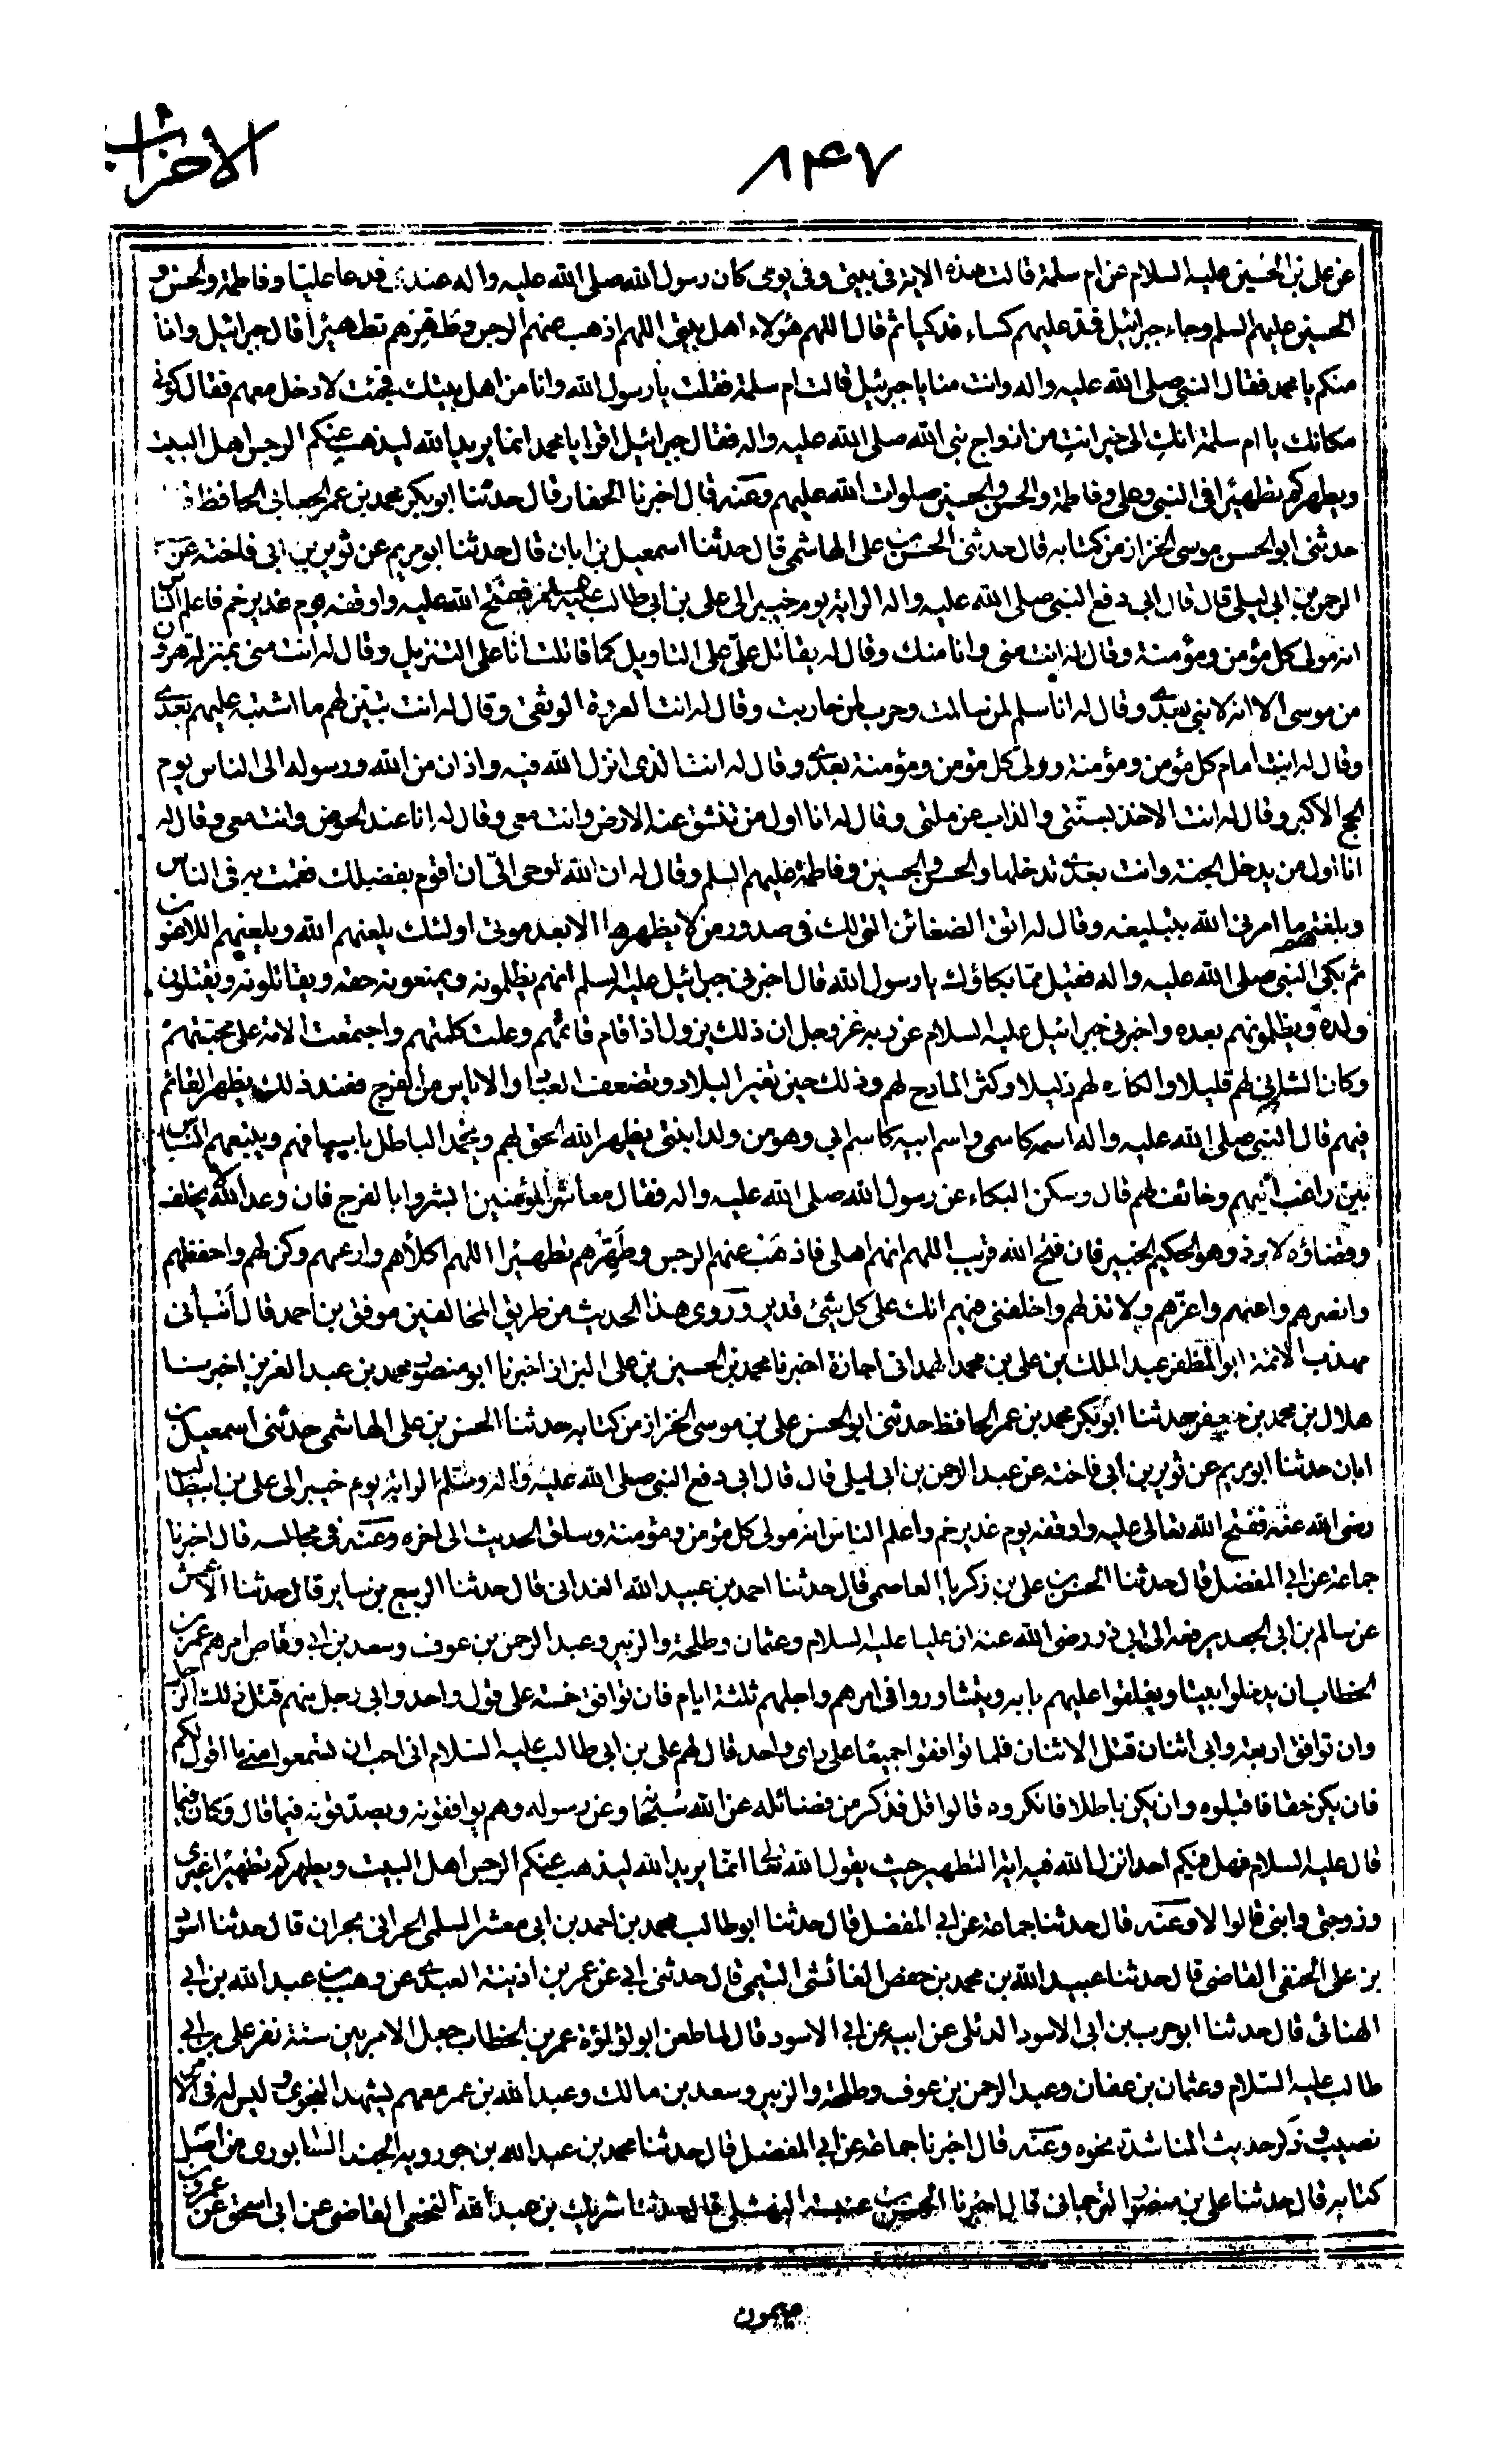 الاحزاب
٨٤٧
عن على بن الحسين عليه السلام عن ام سلمة قالت هذه الاية فى بيتى وفى يومى كان رسول الله صلى الله عليه واله عندى فدعا عليا وفاطمة والحسن و
الحسين عليهم السلم وجاء جبرائيل فمد عليهم كساء فدكيا ثم قال اللهم هؤلاء اهل بيتى اللهم اذهب عنهم الرجس وطهرهم تطهيرا قال جبرائيل وانا
منكم يا محمد فقال النبى صلى الله عليه واله وانت منا يا جبرئيل قالت ام سلمة فقلت يا رسول الله وانا من اهل بيتك فجئت لادخل معهم فقال كونى
مكانك يا ام سلمة انك الى خير انت من ازواج نبى الله صلى الله عليه واله فقال جبرائيل اقرا يا محمد انما يريد الله ليذهب عنكم الرجس اهل البيت
ويطهركم تطهيرا فى النبى وعلى وفاطمة والحسن والحسين صلوات الله عليهم وعنه قال اخبرنا الحفار قال حدثنا ابو بكر محمد بن عمر الجعابى الحافظ
حدثنى ابو الحسن موسى الخزاز من كتابه قال حدثنى الحسن بن على الهاشمى قال حدثنا اسمعيل بن ابان قال حدثنا ابو مريم عن ثوير بن ابى فاخته عن
الرحمن بن ابى ليلى قال قال ابى دفع النبى صلى الله عليه واله الراية يوم خيبر الى على بن ابى طالب عليه السلم ففتح الله عليه واوقفه يوم غدير خم فاعلم الناس
انه مولى كل مؤمن ومؤمنة وقال له انت منى وانا منك وقال له يقاتل على على التاويل كما قاتلت انا على التنزيل وقال له انت منى بمنزلة هرون
من موسى الا انه لا نبى بعدى وقال له انا سلم لمن سالمت وحرب لمن حاربت وقال له انت العروة الوثقى وقال له انت تبين لهم ما اشتبه عليهم بعدى
وقال له انت امام كل مؤمن ومؤمنة وولى كل مؤمن ومؤمنة بعدى وقال له انت الذى انزل الله فيه واذان من الله ورسوله الى الناس يوم
الحج الاكبر وقال له انت الاخذ بسنتى والذاب عن ملتى وقال له انا اول من تنشق عنه الارض وانت معى وقال له انا عند الحوض وانت معى وقال له
انا اول من يدخل الجنة وانت بعدى تدخلها والحسن والحسين وفاطمة عليهم السلم وقال له ان الله اوحى الى ان اقوم بفضلك فقمت به فى الناس
وبلغتهم ما امرنى الله بتبليغه وقال له اتق الضغائن التى لك فى صدور من لا يظهرها الا بعد موتى اولئك يلعنهم الله ويلعنهم اللاعنون
ثم بكى النبى صلى الله عليه واله فقيل مما بكاؤك يا رسول الله قال اخبرنى جبرائيل عليه السلم انهم يظلمونه ويمنعونه حقه ويقاتلونه ويقتلون
ولده ويظلمونهم بعده واخبرنى جبرائيل عليه السلام عن ربه عز وجل ان ذلك يزول اذا قام قائمهم وعلت كلمتهم واجتمعت الامة على محبتهم
وكان الشانى لهم قليلا والكاره لهم ذليلا وكثر المادح لهم وذلك حين تغير البلاد وتضعف العباد والاياس من الفرج فعند ذلك يظهر القائم
فيهم قال النبى صلى الله عليه واله اسمه كاسمى واسم ابيه كاسم ابى وهو من ولد ابنتى يظهر الله الحق بهم ويخمد الباطل باسيافهم ويتبعهم الناس
بين راغب اليهم وخائف لهم قال وسكن البكاء عن رسول الله صلى الله عليه واله فقال معاشر المؤمنين ابشروا بالفرج فان وعد الله لا يخلف
وقضاؤه لا يرد وهو الحكيم الخبير فان فتح الله قريب اللهم انهم اهلى فاذهب عنهم الرجس وطهرهم تطهيرا اللهم اكلأهم وارعهم وكن لهم واحفظهم
وانصرهم واعنهم واعزهم ولا تذلهم واخلفنى فيهم انك على كل شئ قدير وروى هذا الحديث من طريق المخالفين موفق بن احمد قال أنبأنى
مهذب الائمة ابو المظفر عبد الملك بن على بن محمد الهمدانى اجازة اخبرنا محمد بن الحسين بن على البزاز اخبرنا ابو منصور محمد بن عبد العزيز اخبرنا
هلال بن محمد بن جعفر حدثنا ابو بكر محمد بن عمر الحافظ حدثنى ابو الحسن على بن موسى الخزاز من كتابه حدثنا الحسن بن على الهاشمى حدثنى اسمعيل بن
ابان حدثنا ابو مريم عن ثوير بن ابى فاخته عن عبد الرحمن بن ابى ليلى قال قال ابى دفع النبى صلى الله عليه واله وسلم الراية يوم خيبر الى على بن ابيطالب
رضى الله عنه ففتح الله تعالى عليه واوقفه يوم غدير خم واعلم الناس انه مولى كل مؤمن ومؤمنة وساق الحديث الى اخره وعنه فى مجالسه قال اخبرنا
جماعة عن ابى المفضل قال حدثنا الحسن بن على بن زكريا العاصمى قال حدثنا احمد بن عبيد الله الغدانى قال حدثنا الربيع بن سيار قال حدثنا الاعمش
عن سالم بن ابى الجعد يرفعه الى ابى ذر رضى الله عنه ان عليا عليه السلام وعثمان وطلحة والزبير وعبد الرحمن بن عوف وسعد بن ابى وقاص امرهم عمر بن
الخطاب ان يدخلوا بيتا ويغلقوا عليهم بابه ويتشاوروا فى امرهم واجلهم ثلثة ايام فان توافق خمسة على قول واحد وابى رجل منهم قتل ذلك الرجل
وان توافق اربعة وابى اثنان قتل الاثنان فلما توافقوا جميعا على راى واحد قال لهم على بن ابى طالب عليه السلام انى احب ان تسمعوا منى ما اقول لكم
فان يكن حقا فاقبلوه وان يكن باطلا فانكروه قالوا قل فذكر من فضائله عن الله سبحانه وعن رسوله وهم يوافقونه ويصدقونه فيما قال وكان فيما
قال عليه السلام فهل فيكم احد انزل الله فيه اية التطهير حيث يقول الله تعالى انما يريد الله ليذهب عنكم الرجس اهل البيت ويطهركم تطهيرا غيرى
وزوجتى وابنى قالوا لا وعنه قال حدثنا جماعة عن ابى المفضل قال حدثنا ابو طالب محمد بن احمد بن ابى معشر السلمى الحرانى بحران قال حدثنا
بن على الحنفى القاضى قال حدثنا عبيد الله بن محمد بن حفص العائشى التيمى قال حدثنى ابى عن عمر بن اذينة العبدى عن وهب بن عبد الله بن ابى
الهنائى قال حدثنا ابو حرب بن ابى الاسود الدئلى عن ابيه عن ابى الاسود قال لما طعن ابو لؤلؤة عمر بن الخطاب جعل الامر بين ستة نفر على بن ابى
طالب عليه السلام وعثمان بن عفان وعبد الرحمن بن عوف وطلحة والزبير وسعد بن مالك وعبد الله بن عمر معهم يشهد النجوى وليس له فى الامر
نصيب وذكر حديث المناشدة نحوه وعنه قال اخبرنا جماعة عن ابى المفضل قال حدثنا محمد بن عبد الله بن جورويه الجند السابورى من اصل
كتابه قال حدثنا على بن منصور الترجمانى قال اخبرنا الحسن بن عنبسة النهشلى قال حدثنا شريك بن عبد الله النخعى القاضى عن ابى اسحق عن عمرو بن
ميمون